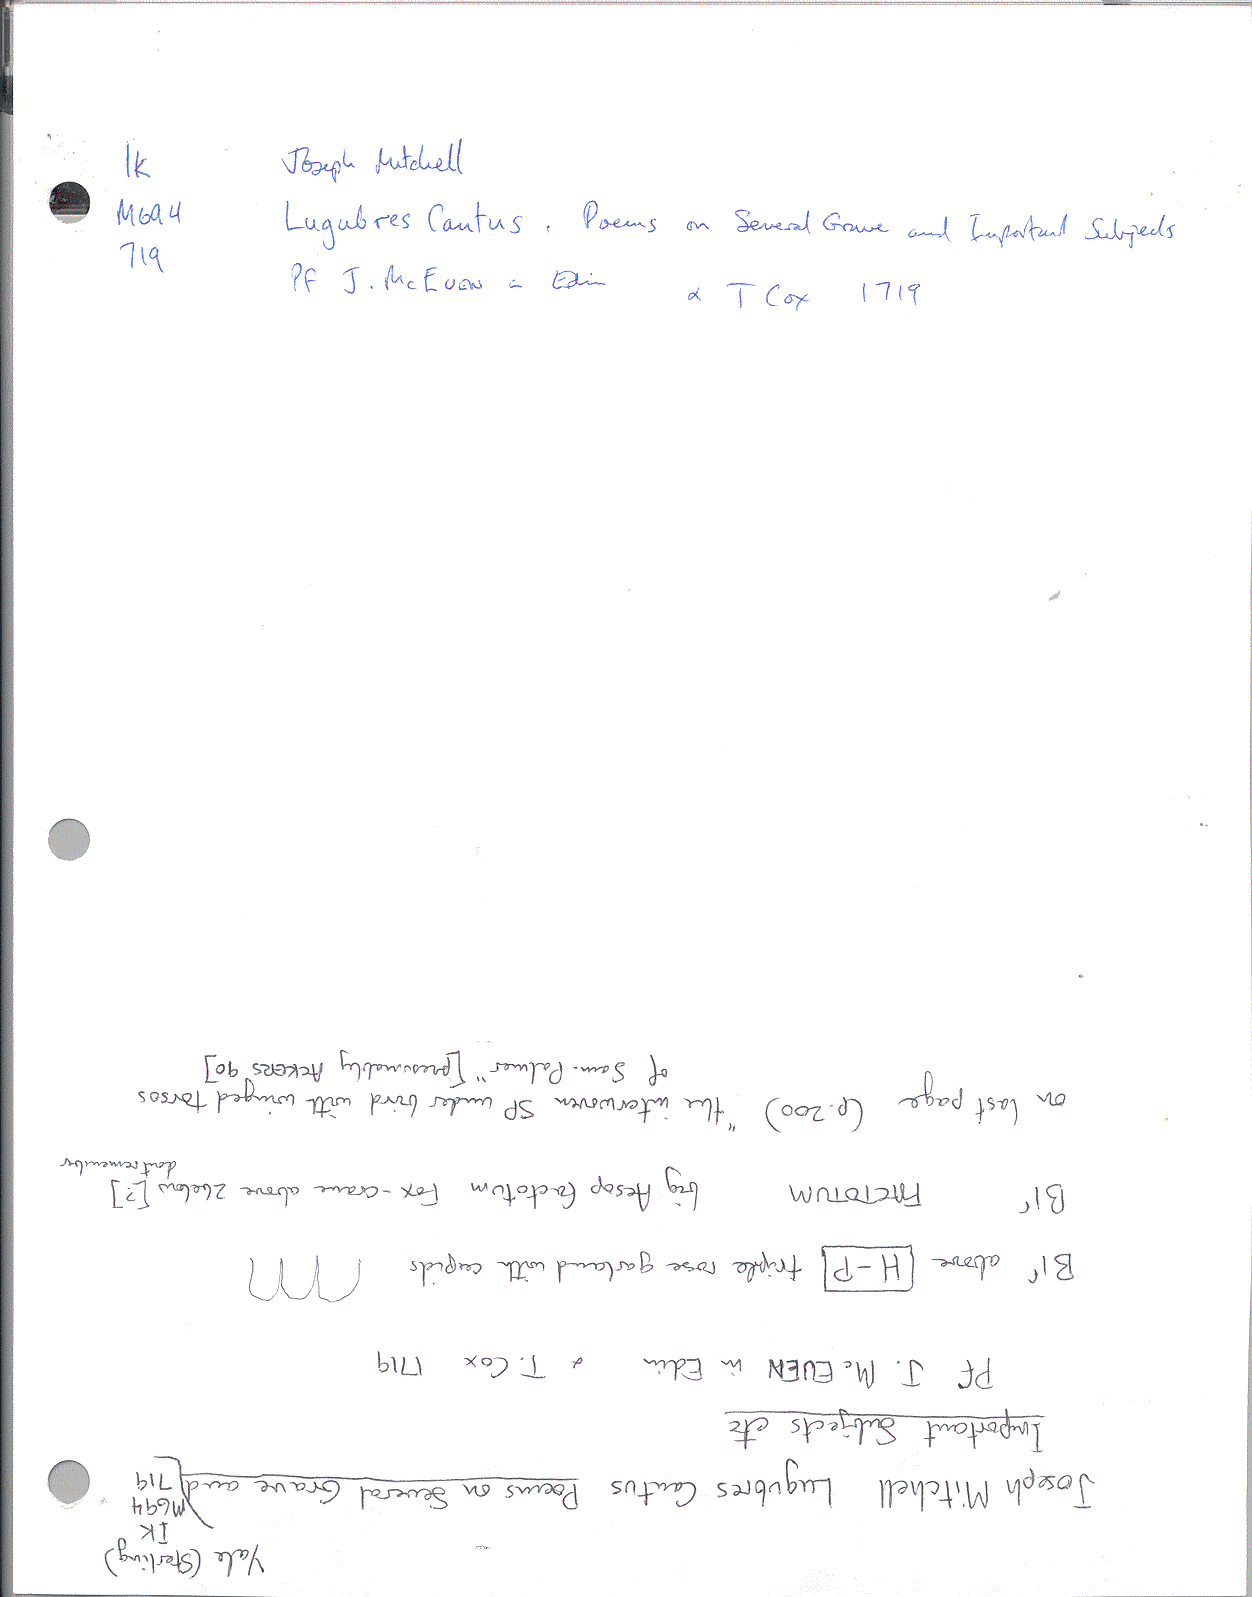 Ik
M694
719
Joseph Mitchell
Lugubres Cantus. Poems on Several Grave and Important Subjects
PF J. McEuen in Edin & T Cox 1719
Yale (Sterling)
IK
M694
719
Joseph Mitchell Lugubres Cantus Poems on Several Grave and
Important Subjects etc
PF J. McEUEN in Edin & T. Cox 1719
B1r above H-P triple rose garland with cupids
B1r FACTOTUM big Aesop factotum Fox-crane above 2 below [?]
dont remember
on last page (p.200) "the interwoven SP under bird with winged torsos
of Sam. Palmer" [presumably ACKERS 90]